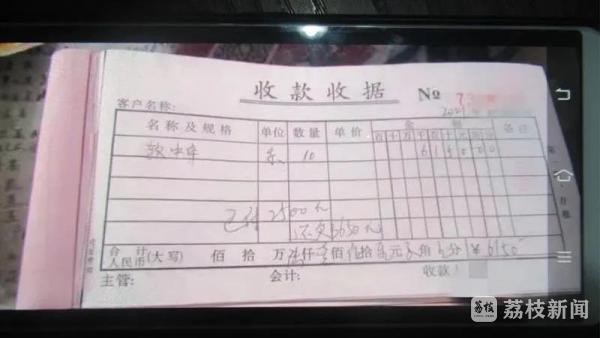 收款收据
№ 7
客户名称:
名称及规格 单位 数量 单价 金额 备注
百 十 万 千 百 十 元 角 分
软中华 条 10 6 1 5 0 0 0
已付 2500元
还欠3650元
合计人民币(大写) 佰 拾 万 陆仟壹佰伍拾零元零角零分 ¥ 6150
主管: 会计: 收款
荔枝 荔枝新闻